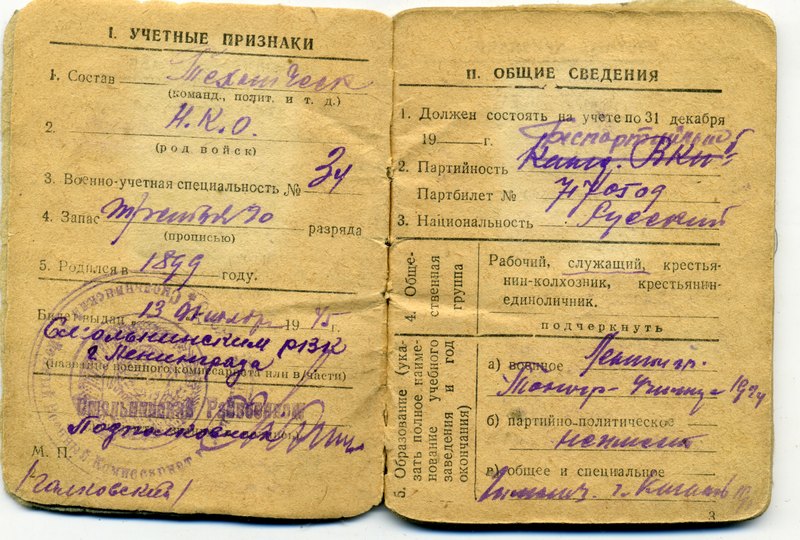 I. УЧЕТНЫЕ ПРИЗНАКИ
1. Состав Техническ
(команд., полит. и т. д.)
2. Н.К.О.
(род войск)
3. Военно-учетная специальность № 34
4. Запас третьяго разряда
(прописью)
5. Родился в 1899 году.
Билет выдан „13 1945 г.
Смольнинским РВК
г. Ленинграда
(название военного комиссариата или в/части)
Смольнинский Райвоенком
Подполковник
М. П.
II. ОБЩИЕ СВЕДЕНИЯ
1. Должен состоять на учете по 31 декабря
19 г. Беспартийный
2. Партийность Канд. ВКПб
Партбилет №
3. Национальность Русский
4. Общественная группа
Рабочий, служащий, крестья-
нин-колхозник, крестьянин-
единоличник.
подчеркнуть
5. Образование (ука-
зать полное наиме-
нование учебного
заведения и год
окончания)
а) военное Ленингр.
1924
б) партийно-политическое
не имеет
в) общее и специальное
г.
3